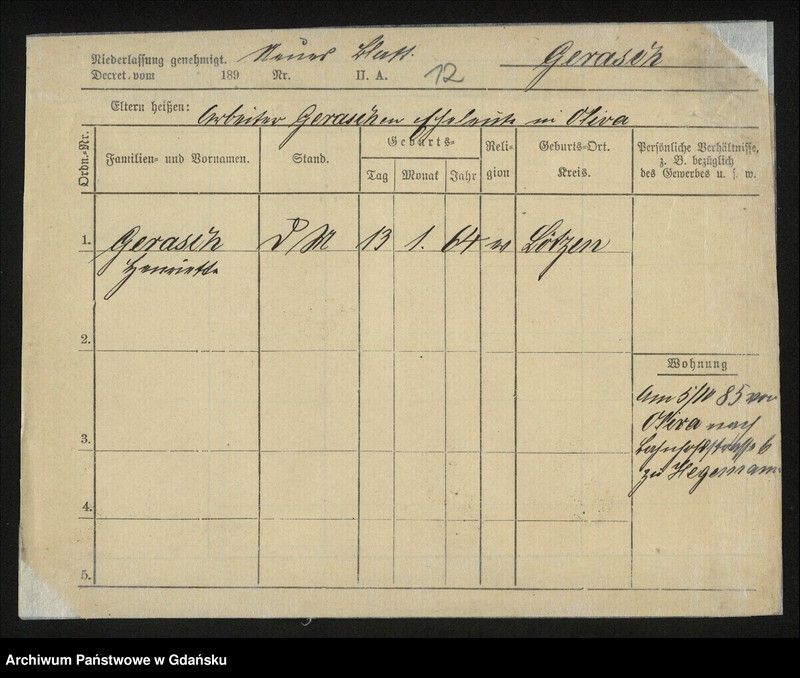 Niederlassung genehmigt. Neues Blatt. Gerasch
Decret vom 189 Nr. II. A. 12
Eltern heißen: Arbeiter Geraschen Eheleute in Oliva
Ordn.-Nr. Familien- und Vornamen. Stand. Geburts- Reli-gion Geburts-Ort. Persönliche Verhältnisse,
Tag Monat Jahr Kreis. z. B. bezüglich
des Gewerbes u. s. w.
1. Gerasch D M 13 1. 64 ev Lötzen
Henriette
2.
Wohnung
Am 5/IV 85 von
Oliva nach
3. Bahnhofstrasse 6
zu Hegemann
4.
5.
Archiwum Państwowe w Gdańsku